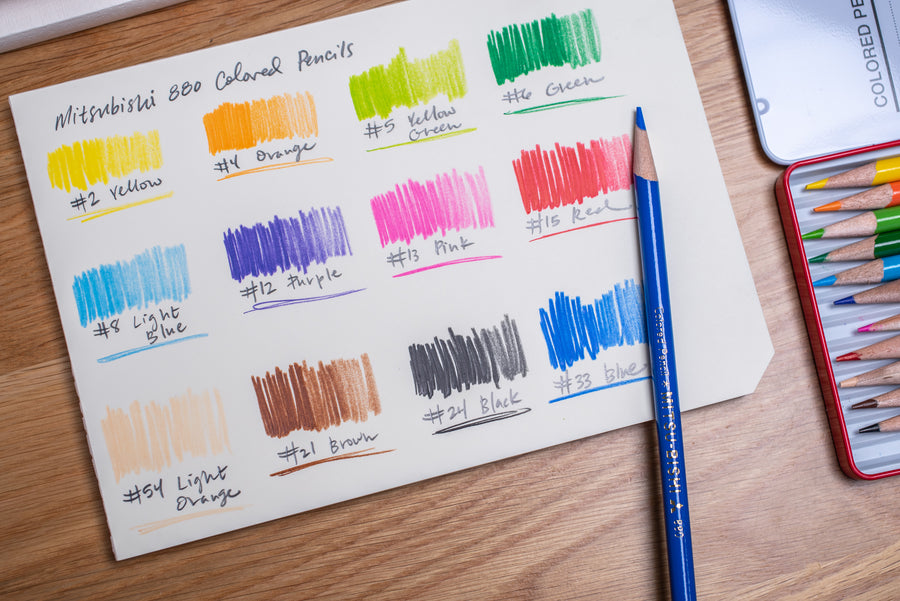 Mitsubishi 880 Colored Pencils
#2 Yellow
#4 Orange
#5 Yellow
Green
#6 Green
#8 Light
Blue
#12 Purple
#13 Pink
#15 Red
#54 Light
Orange
#21 Brown
#24 Black
#33 Blue
MITSUBISHI
COLORED PE